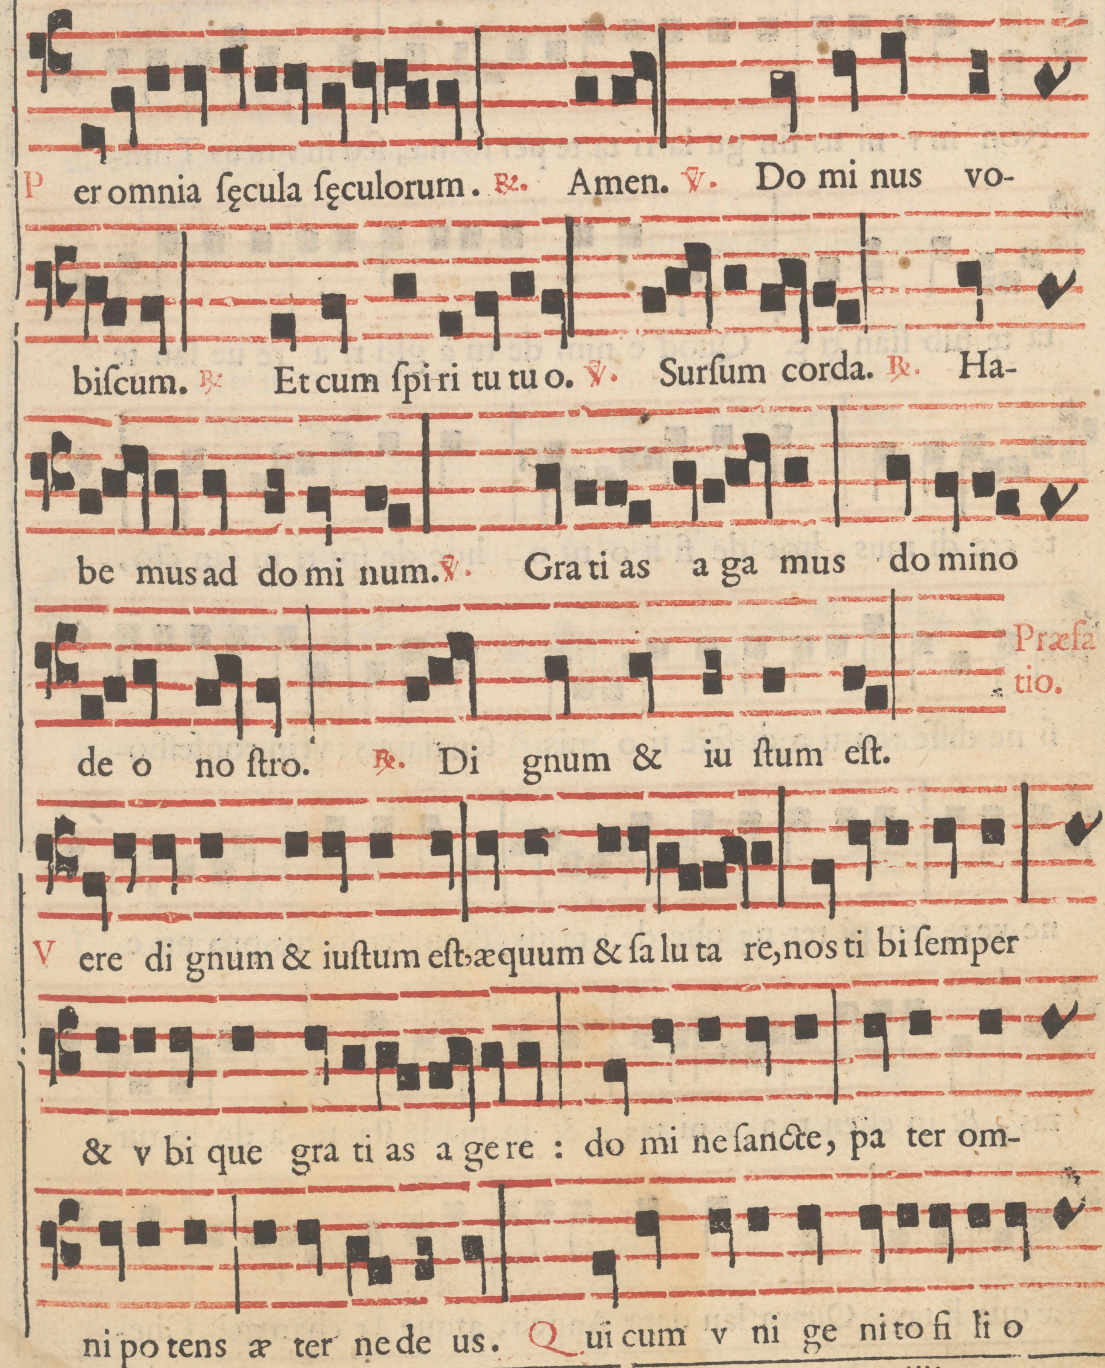 Per omnia ſęcula ſęculorum. ℟. Amen. ℣. Do mi nus vo-
biſcum. ℟ Et cum ſpi ri tu tu o. ℣. Surſum corda. ℟. Ha-
be mus ad do mi num. ℣. Gra ti as a ga mus do mino
de o no ſtro. ℟. Di gnum & iu ſtum eſt. Præfa
tio.
Vere di gnum & iuſtum eſt, æquum & ſa lu ta re, nos ti bi ſemper
& v bi que gra ti as a ge re : do mi ne ſancte, pa ter om-
ni po tens æ ter ne de us. Qui cum v ni ge ni to fi li o